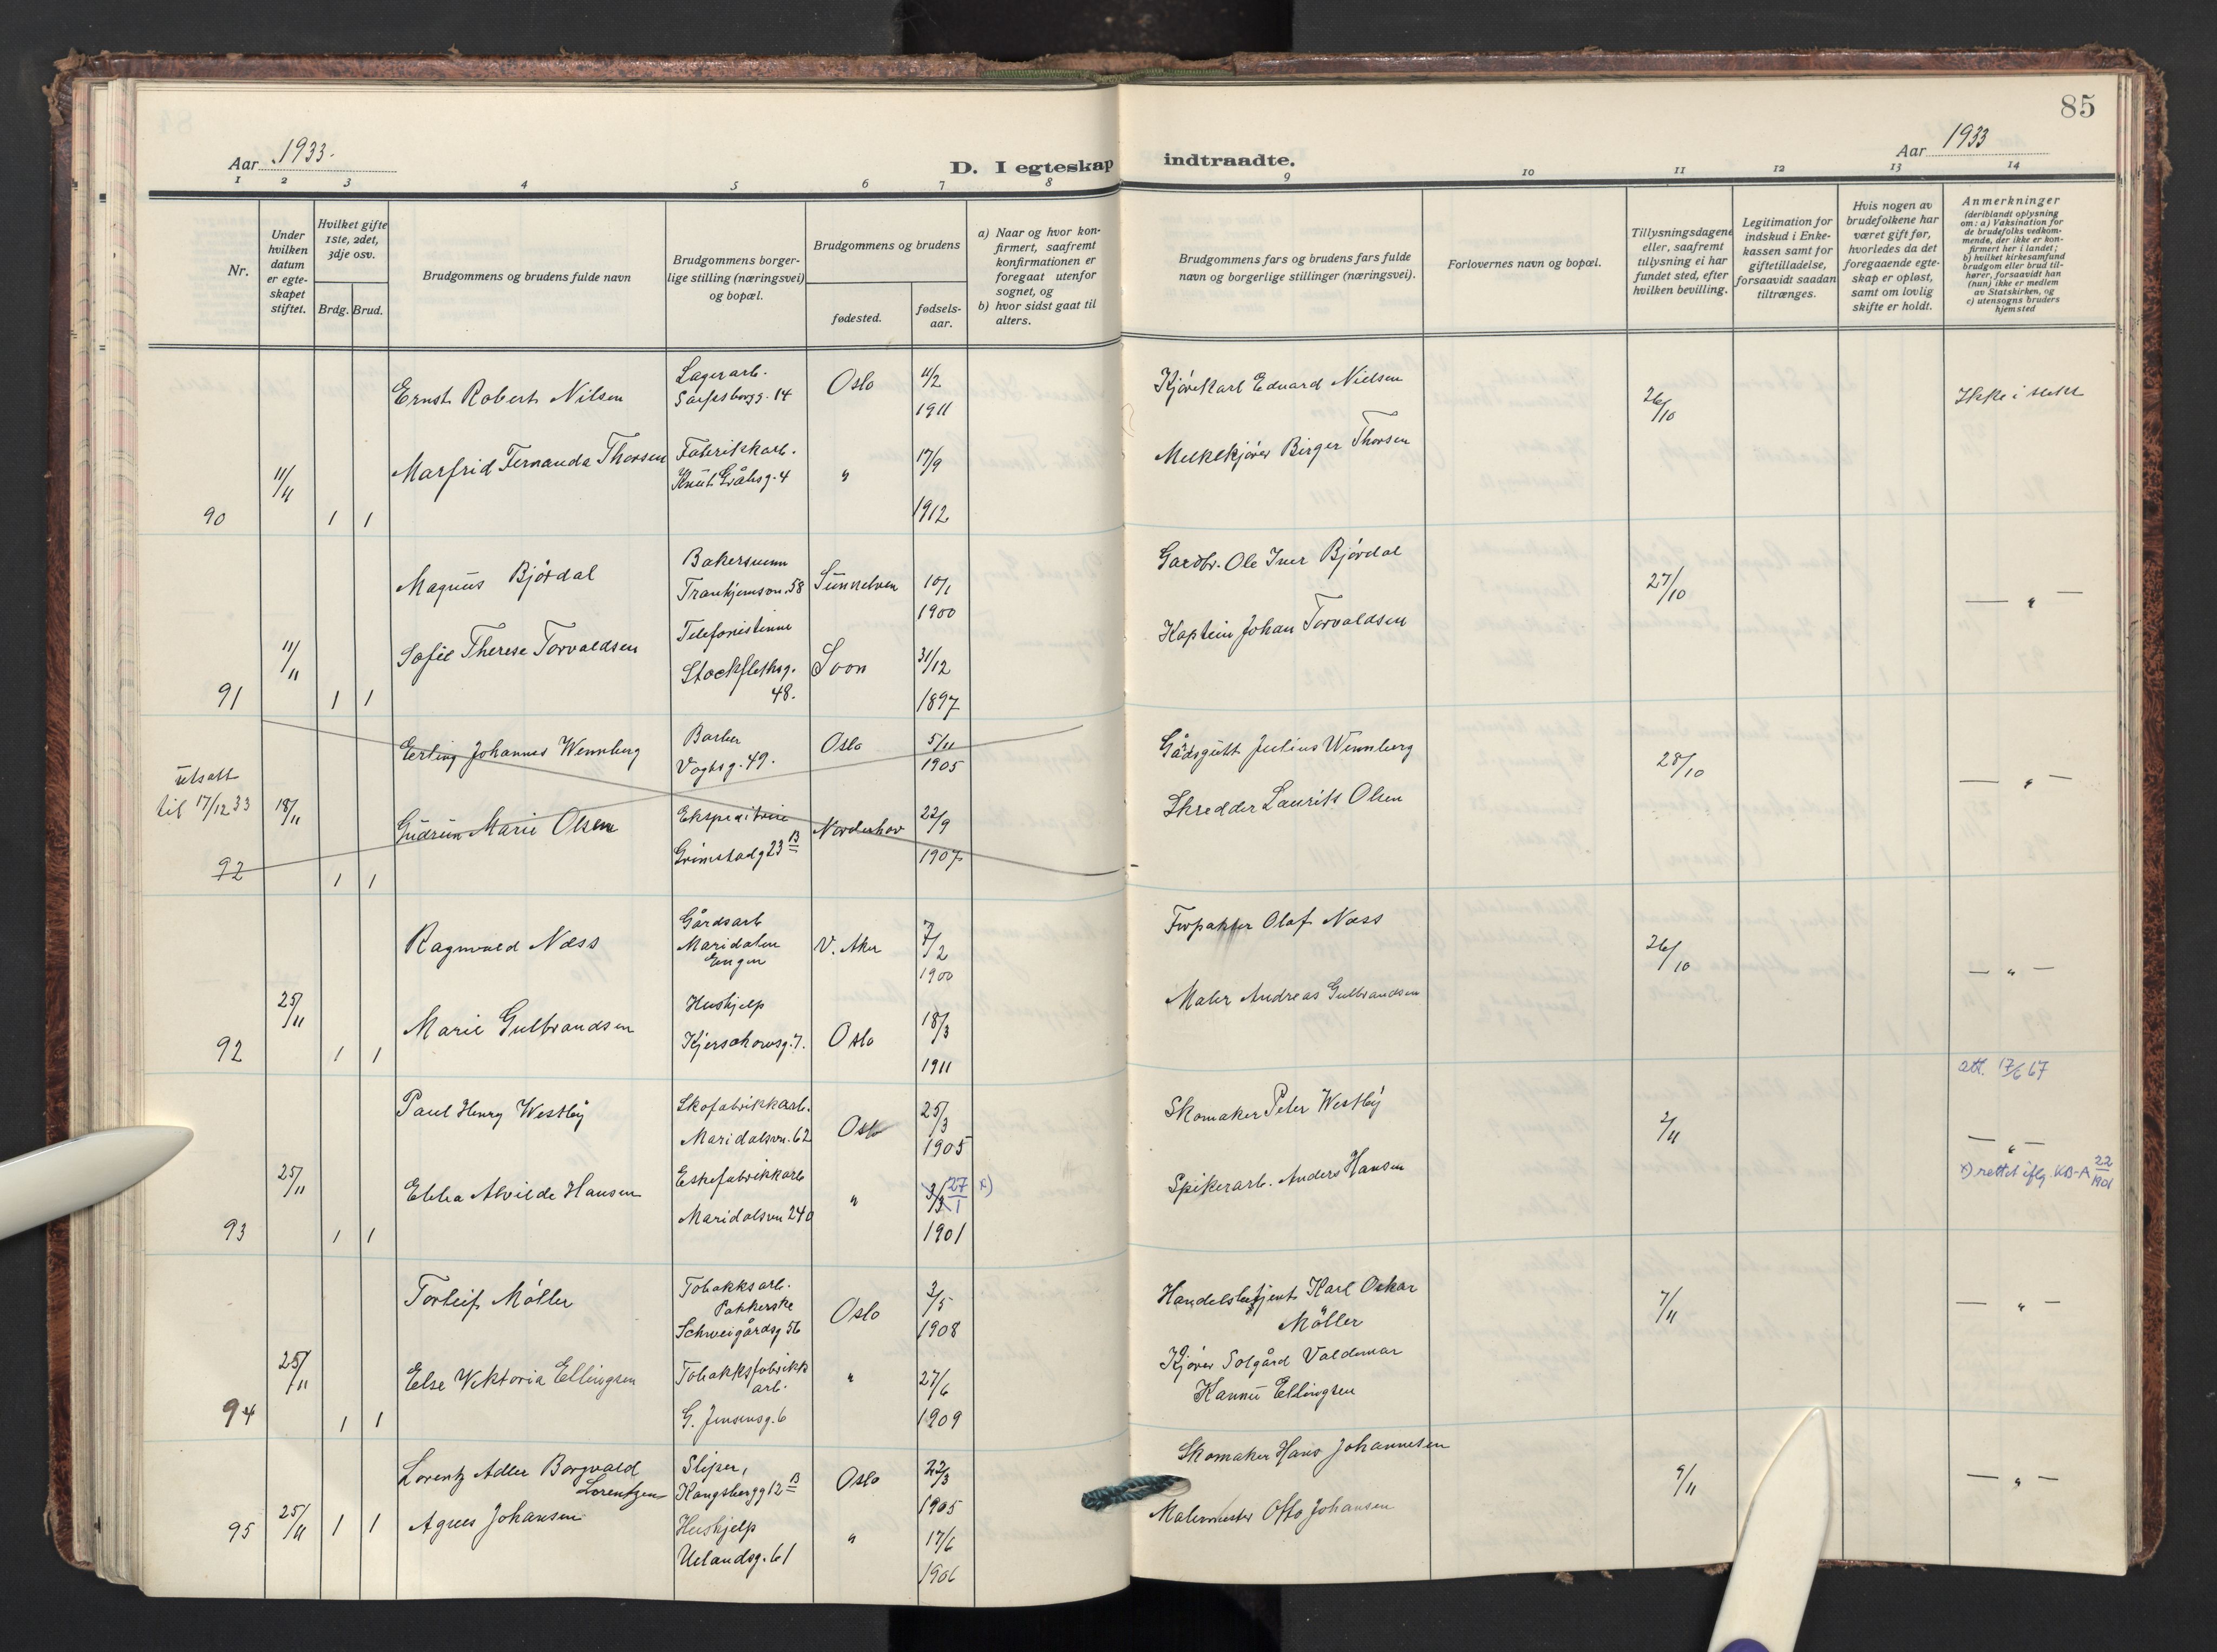 85
Aar 1933.
D. I egteskap indtraadte.
Aar 1933
1 2 3 4 5 6 7 8 9 10 11 12 13 14
Nr.
Under hvilken datum er egte-skapet stiftet.
Hvilket gifte 1ste, 2det, 3dje osv.
Brdg. Brud.
Brudgommens og brudens fulde navn
Brudgommens borger-lige stilling (næringsvei) og bopæl.
Brudgommens og brudens
fødested.
fødsels-aar.
a) Naar og hvor kon-firmert, saafremt konfirmationen er foregaat utenfor sognet, og
b) hvor sidst gaat til alters.
Brudgommens fars og brudens fars fulde navn og borgerlige stillinger (næringsvei).
Forlovernes navn og bopæl.
Tillysningsdagene eller, saafremt tillysning ei har fundet sted, efter hvilken bevilling.
Legitimation for indskud i Enke-kassen samt for giftetilladelse, forsaavidt saadan tiltrænges.
Hvis nogen av brudefolkene har været gift før, hvorledes da det foregaaende egte-skap er opløst, samt om lovlig skifte er holdt.
Anmerkninger
(deriblandt oplysning om: a) Vaksination for de brudefolks vedkom-mende, der ikke er kon-firmert her i landet; b) hvilket kirkesamfund brudgom eller brud til-hører, forsaavidt han (hun) ikke er medlem av Statskirken, og c) utensogns bruders hjemsted
Ernst Robert Nilsen
Lagerarb.
Sarpsborgg. 14
Oslo
11/2
1911
Kjørekarl Eduard Nielsen
26/10
Ikke i slekt
Marfrid Fernanda Thorsen
Fabrikkarb.
Knut Gråtisg. 4
"
17/9
1912
Melkekjører Birger Thorsen
90
11/11
1 1
Magnus Bjørdal
Bakersvenn
Trondhjemsvn. 58
Sunnelven
10/1
1900
Gardbr. Ole Iver Bjørdal
27/10
— " —
Sofie Therese Torvaldsen
Telefonistinne
Stockflethsg. 48.
Soon
31/12
1897
Kaptein Johan Torvaldsen
91
11/11
1 1
Erling Johannes Wennberg
Barber
Vogtsg. 49.
Oslo
5/11
1905
Gårdsgutt Julius Wennberg
28/10
— " —
utsatt
til 17/12 33
18/11
Gudrun Marie Olsen
Ekspeditrise
Grimstadg 23 B
Norderhov
22/9
1907
Skredder Laurits Olsen
92
1 1
Ragnvald Næss
Gårdsarb
Maridalen
Engen
V. Aker
7/2
1900
Forpakter Olaf Næss
26/10
— " —
Marie Gulbrandsen
Hushjelp
Kjerschowsg. 7.
Oslo
18/3
1911
Maler Andreas Gulbrandsen
92
25/11
1 1
att. 17/6 67
Paul Henry Westby
Skofabrikkarb.
Maridalsvn. 62
Oslo
25/3
1905
Skomaker Peter Westby
2/11
— " —
Ebba Alvilde Hansen
Eskefabrikkarb
Maridalsvn 240
"
3/3 27/1 x)
1901
Spikerarb. Anders Hansen
x) rettet iflg. KB-A 22/1901
93
25/11
1 1
Torleif Møller
Tobakksarb.
Pakkerske
Schweigårdsg 56
Oslo
3/5
1908
Handelsbetjent Karl Oskar
Møller
7/11
— " —
Else Viktoria Ellingsen
Tobakksfabrikk
arb.
G. Jensensg. 6
"
27/6
1909
Kjører Solgård Valdemar
Kannu Ellingsen
94
25/11
1 1
Lorentz Adler Borgvald
Lorentzen
Sliper,
Kongsbergg 12 B
Oslo
22/3
1905
Skomaker Hans Johannesen
9/11
— " —
Agnes Johansen
Hushjelp
Uelandsg. 61
"
17/6
1906
Malermester Otto Johansen
95
25/11
1 1